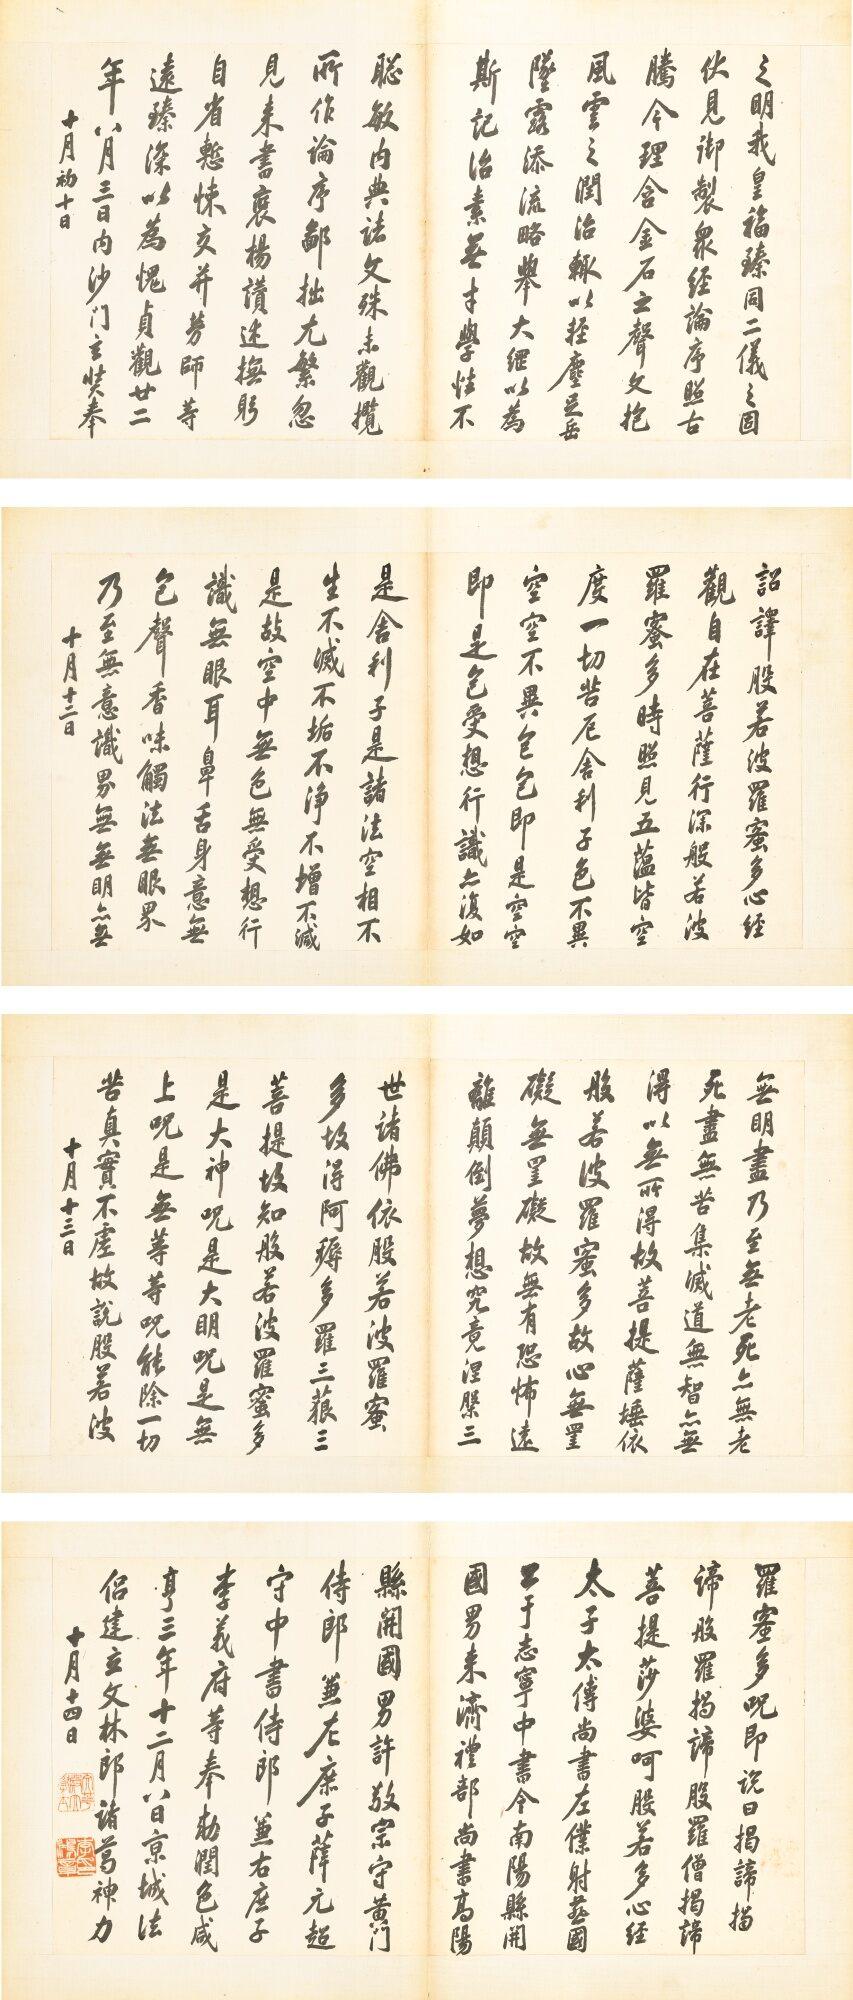 之明我皇福臻同二儀之固
伏見御製眾經論序照古
騰今理含金石之聲文抱
風雲之潤治輒以輕塵足岳
墜露添流略舉大綱以為
斯記治素無才學性不
聡敏內典諸文殊未觀攬
所作論序鄙拙尤繁忽
見來書褒揚讚述撫躬
自省慙悚交并勞師等
遠臻深以為愧貞觀廿二
年八月三日內沙門玄奘奉
十月初十日
詔譯般若波羅蜜多心經
觀自在菩薩行深般若波
羅蜜多時照見五蘊皆空
度一切苦厄舍利子色不異
空空不異色色即是空空
即是色受想行識亦復如
是舍利子是諸法空相不
生不滅不垢不淨不增不減
是故空中無色無受想行
識無眼耳鼻舌身意無
色聲香味觸法無眼界
乃至無意識界無無明亦無
十月十二日
無明盡乃至無老死亦無老
死盡無苦集滅道無智亦無
得以無所得故菩提薩埵依
般若波羅蜜多故心無罣
礙無罣礙故無有恐怖遠
離顛倒夢想究竟涅槃三
世諸佛依般若波羅蜜
多故得阿耨多羅三藐三
菩提故知般若波羅蜜多
是大神呪是大明呪是無
上呪是無等等呪能除一切
苦真實不虛故說般若波
十月十三日
羅蜜多呪即說曰揭諦揭
諦般羅揭諦般羅僧揭諦
菩提莎婆呵般若多心經
太子太傅尚書左僕射燕國
公于志寧中書令南陽縣開
國男來濟禮部尚書高陽
縣開國男許敬宗守黃門
侍郎兼左庶子薛元超
守中書侍郎兼右庶子
李義府等奉勅潤色咸
亨三年十二月八日京城法
侶建立文林郎諸葛神力
十月十四日